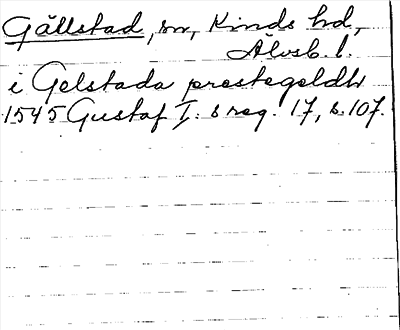 Gällstad, sn, Kinds hd,
Älvsb. l.
i Gelstada prestegeldh
1545 Gustaf I:s reg. 17, s. 107.